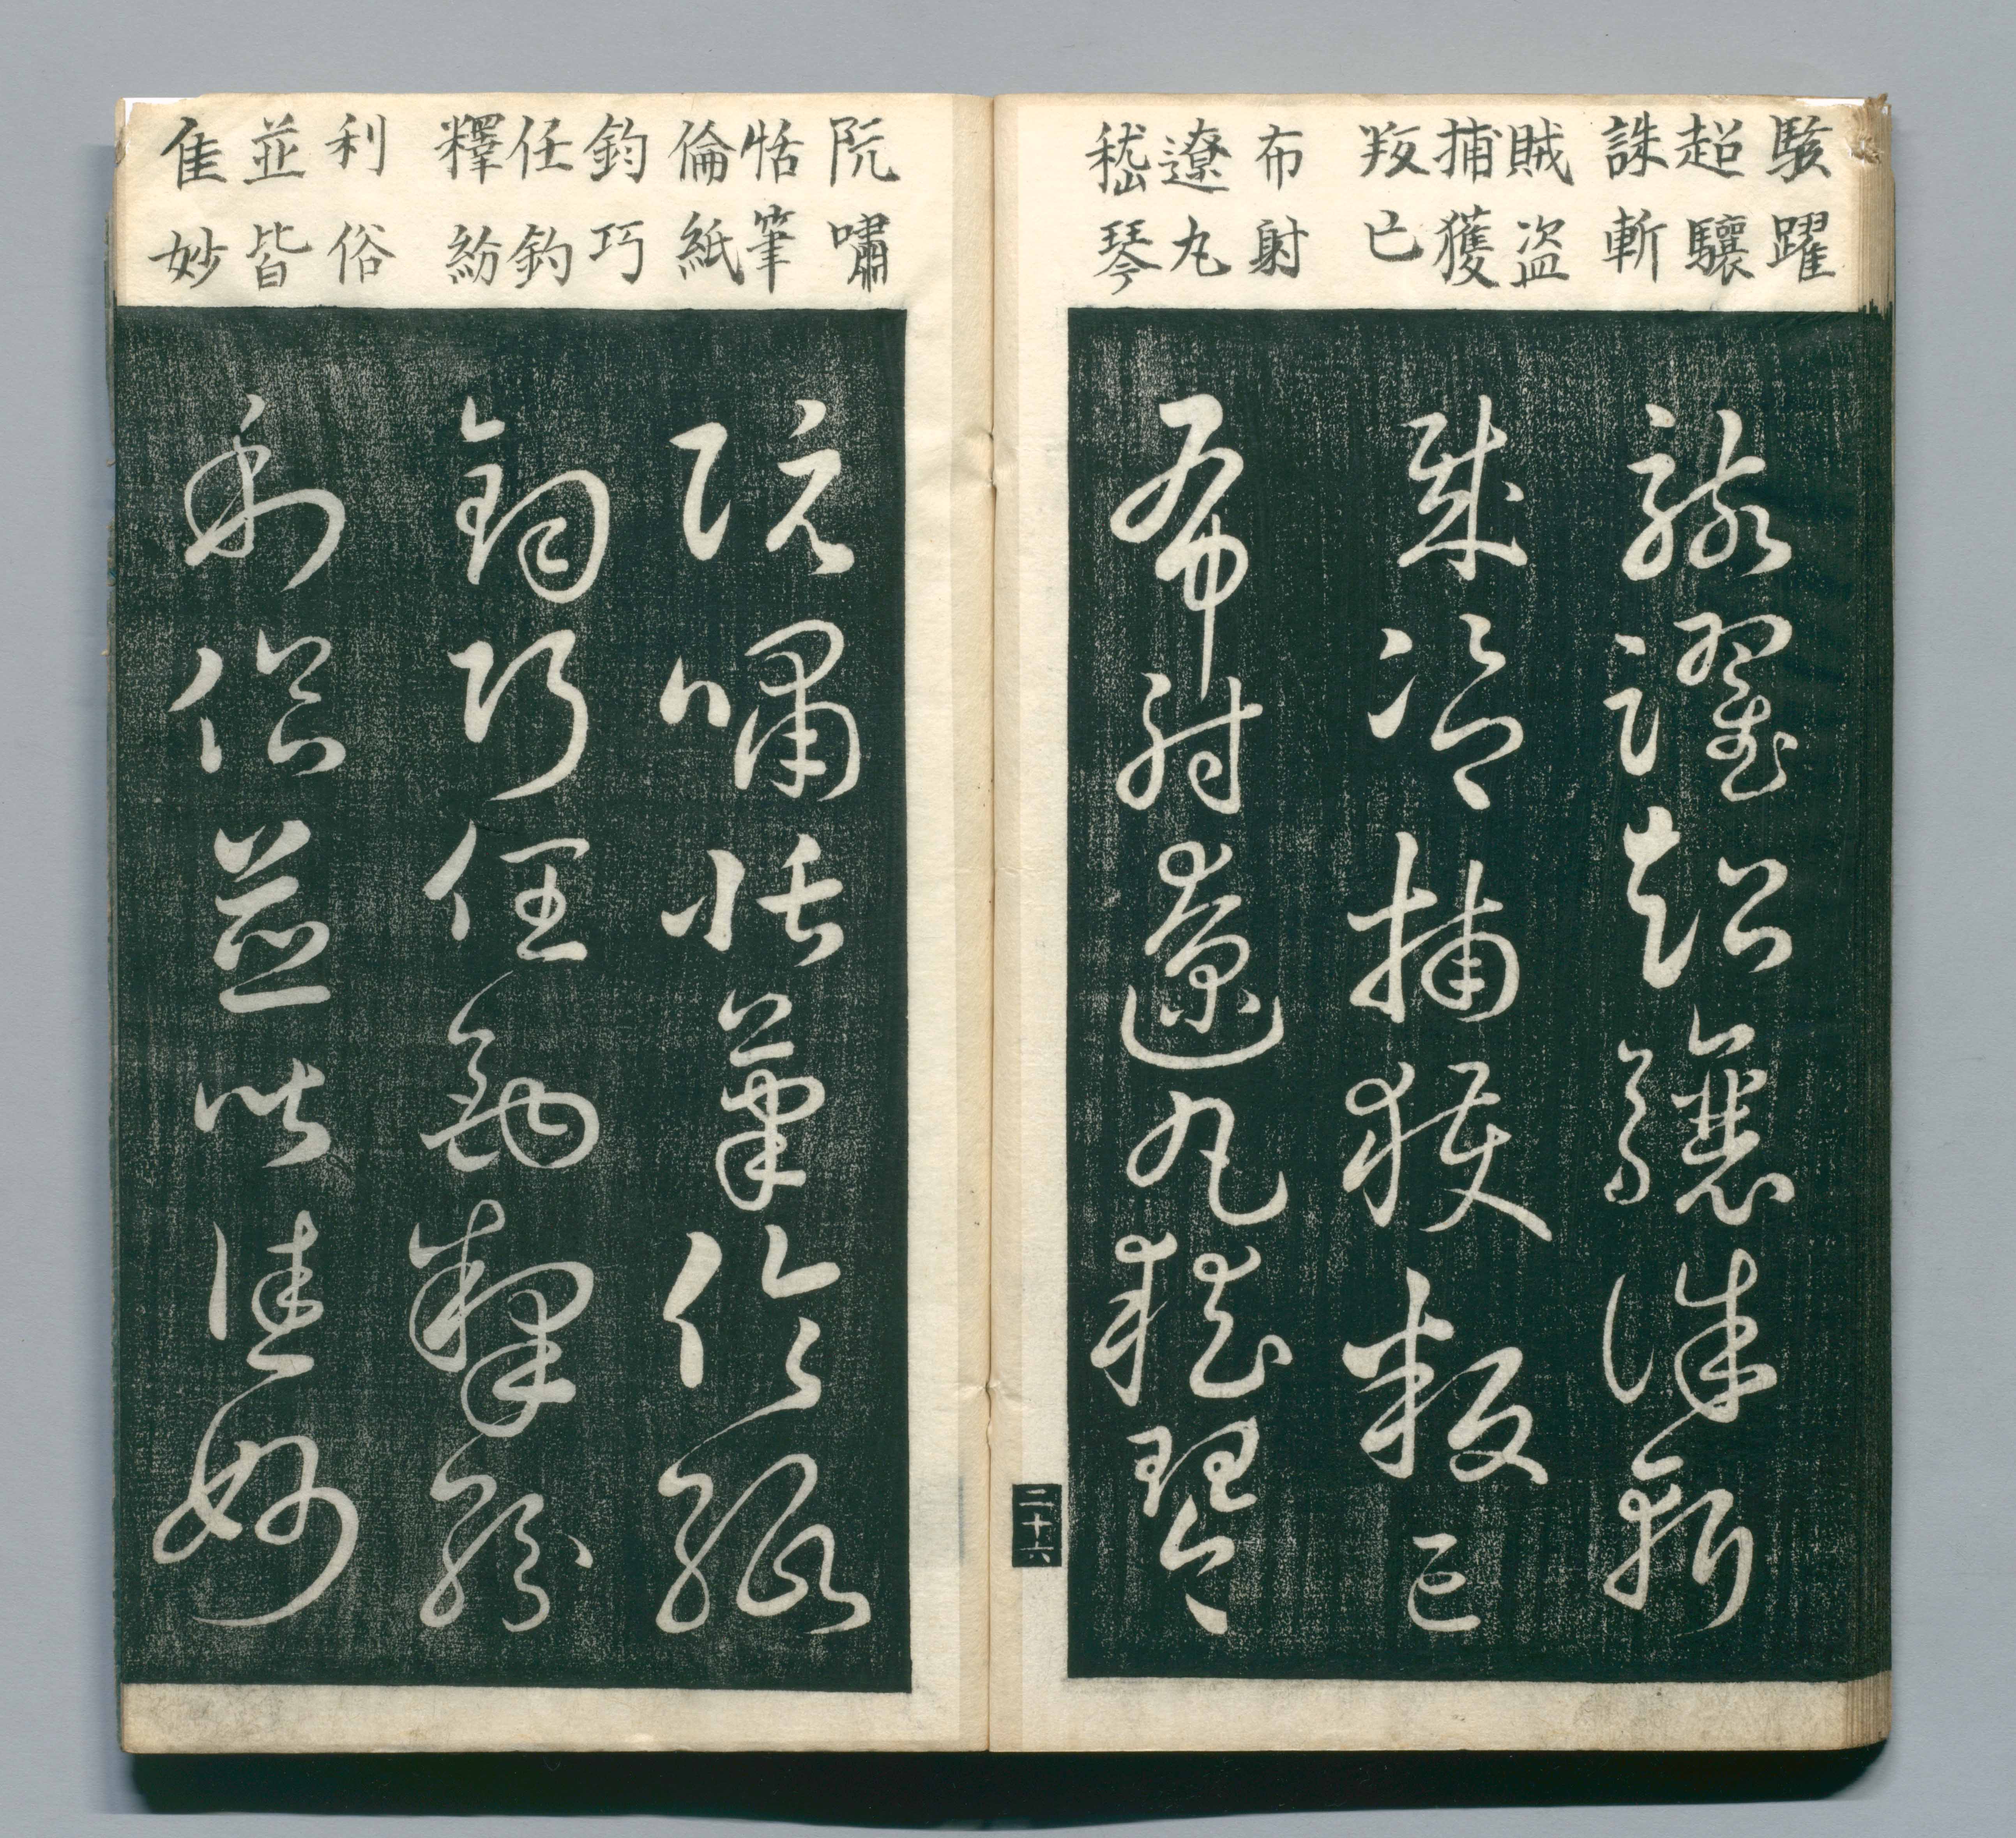 駭躍
超驤
誅斬
賊盗
捕獲
叛亡
布射
遼丸
嵇琴
駭躍超驤誅斬
賊盗捕獲叛亡
布射遼丸嵇琴
二十六
阮嘯
恬筆
倫紙
鈞巧
任釣
釋紛
利俗
並皆
佳妙
阮嘯恬筆倫紙
鈞巧任釣釋紛
利俗並皆佳妙